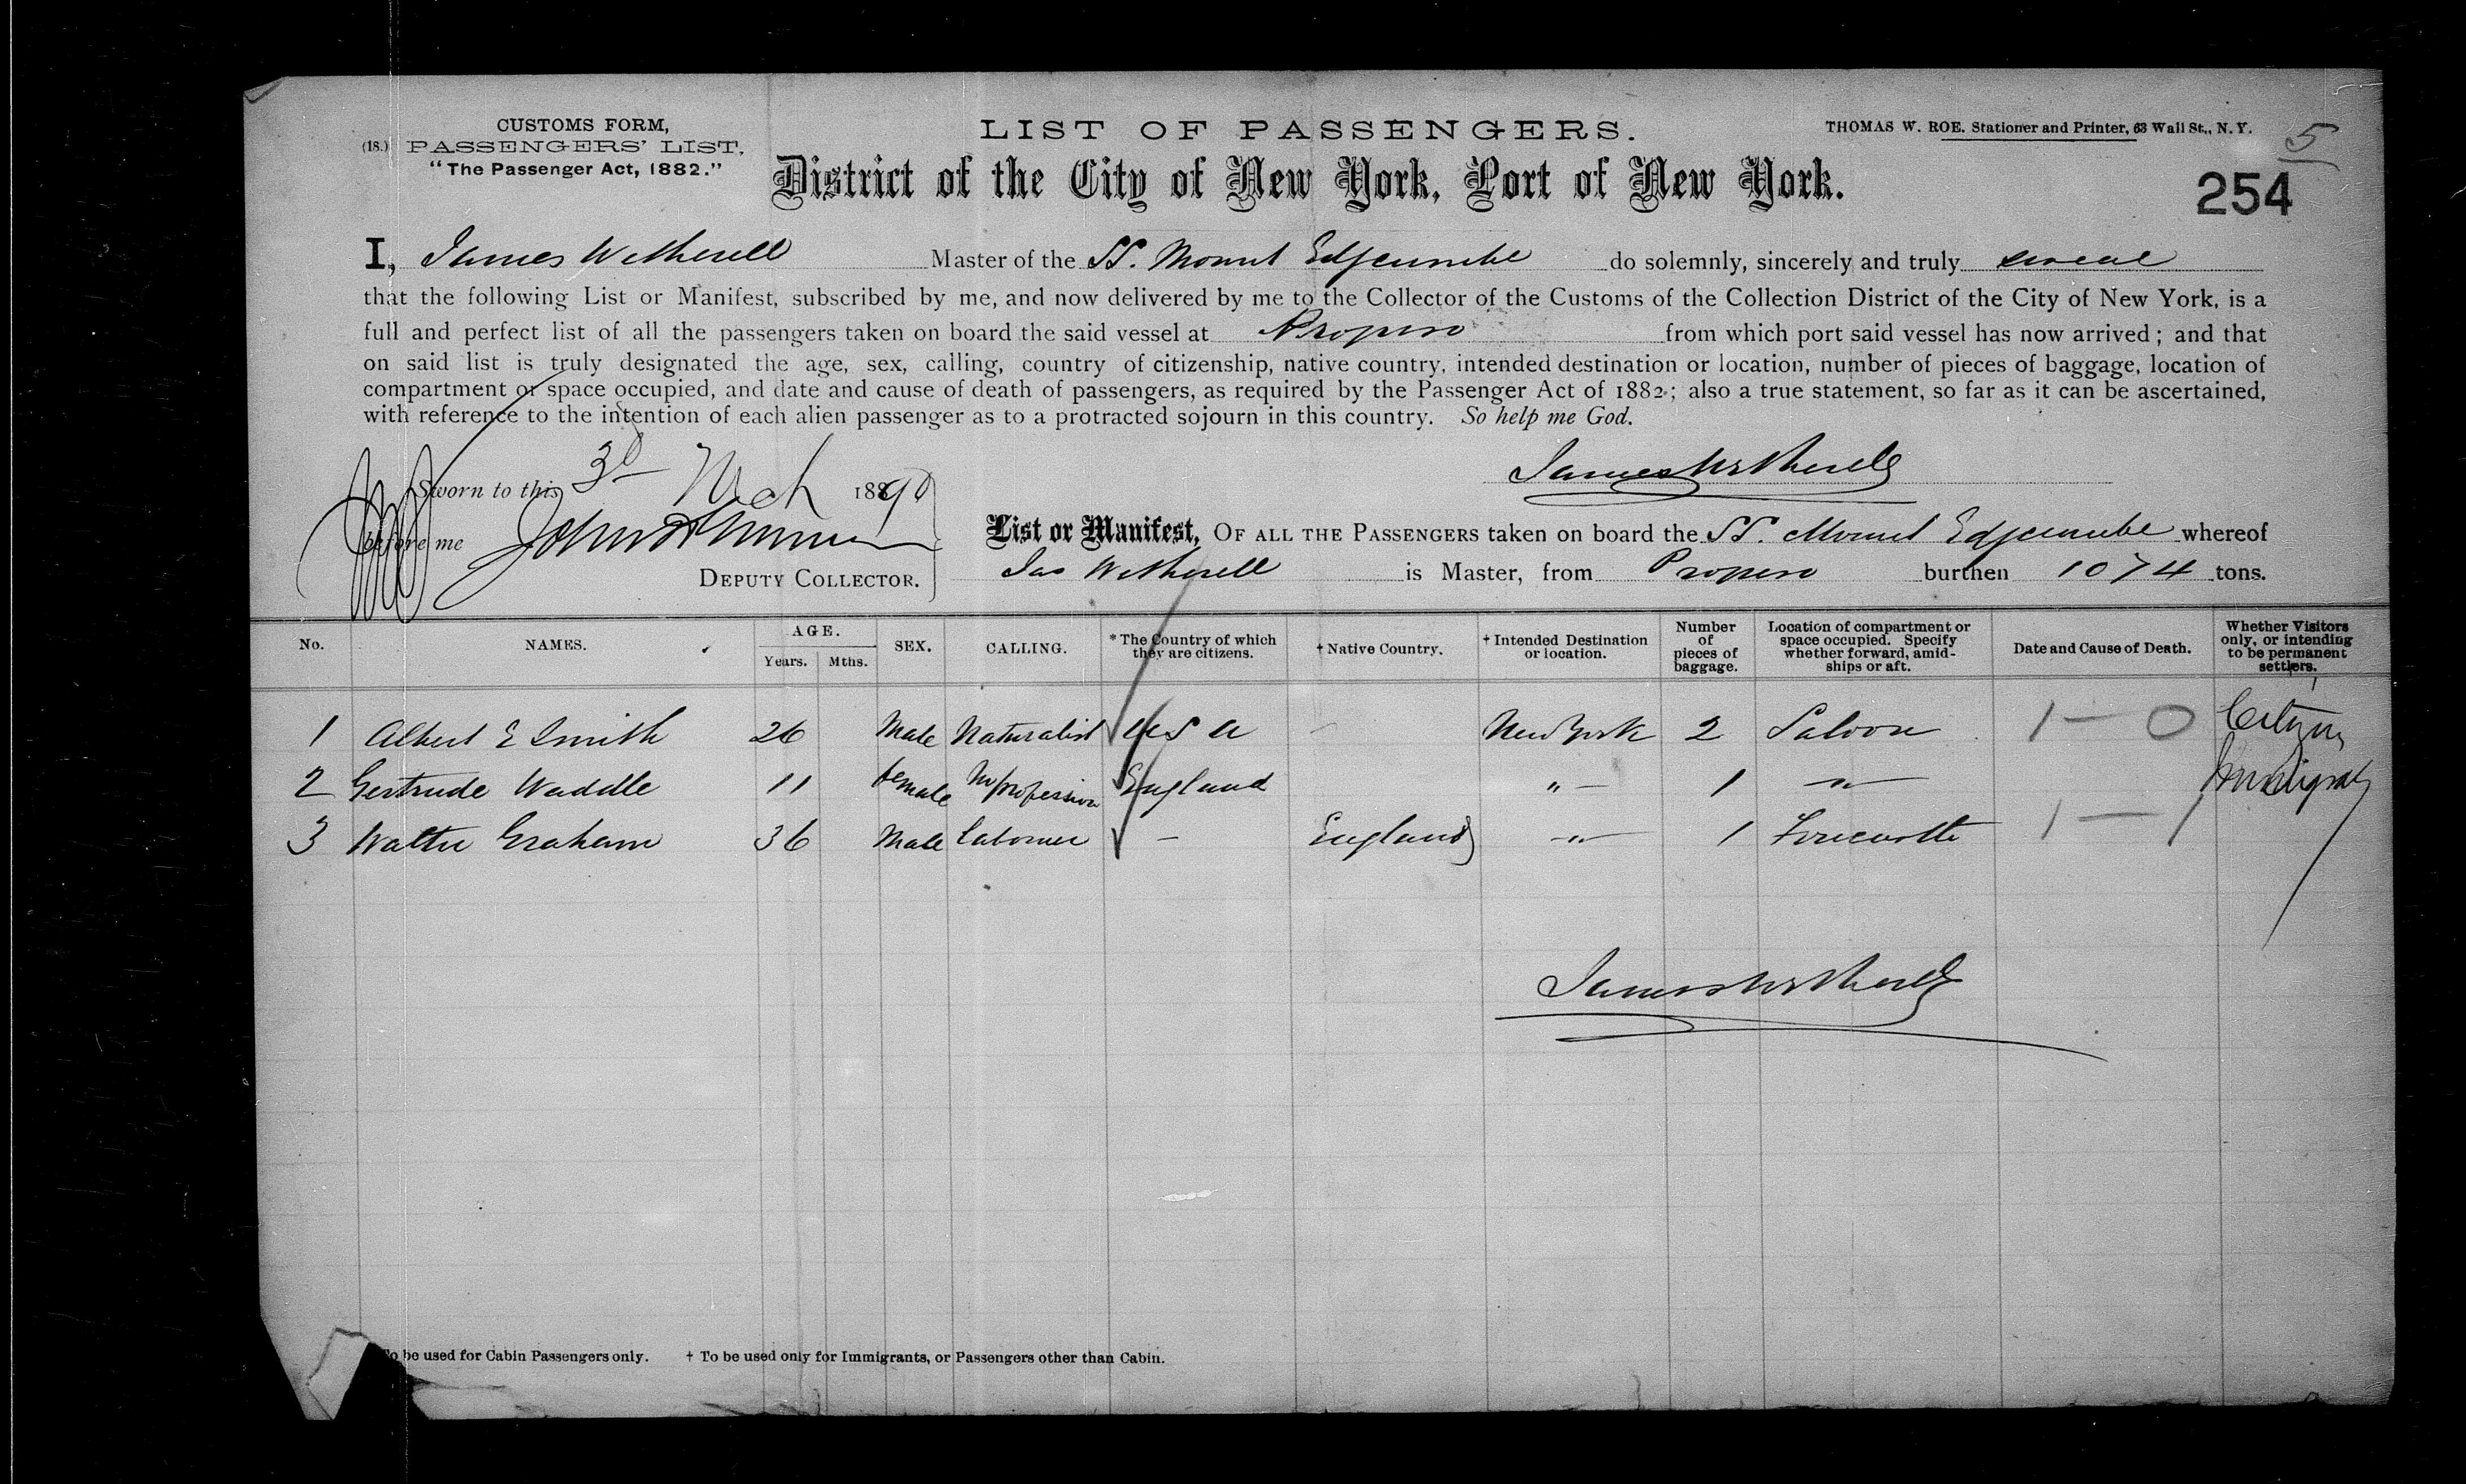 CUSTOMS FORM,
(18.) PASSENGERS' LIST,
"The Passenger Act, 1882."
LIST OF PASSENGERS.
THOMAS W. ROE. Stationer and Printer, 63 Wall St., N. Y.
5
District of the City of New York, Port of New York.
254
I, James Wetherell Master of the SS. Mount Edgcumbe do solemnly, sincerely and truly swear
that the following List or Manifest, subscribed by me, and now delivered by me to the Collector of the Customs of the Collection District of the City of New York, is a
full and perfect list of all the passengers taken on board the said vessel at Progreso from which port said vessel has now arrived; and that
on said list is truly designated the age, sex, calling, country of citizenship, native country, intended destination or location, number of pieces of baggage, location of
compartment or space occupied, and date and cause of death of passengers, as required by the Passenger Act of 1882; also a true statement, so far as it can be ascertained,
with reference to the intention of each alien passenger as to a protracted sojourn in this country. So help me God.
James Wetherell
Sworn to this 3d Mch 1890
before me John
DEPUTY COLLECTOR.
List or Manifest, OF ALL THE PASSENGERS taken on board the SS. Mount Edgcumbe whereof
Jas Wetherell is Master, from Progreso burthen 1074 tons.
No. NAMES. AGE. Years. Mths. SEX. CALLING. * The Country of which they are citizens. † Native Country. † Intended Destination or location. Number of pieces of baggage. Location of compartment or space occupied. Specify whether forward, amidships or aft. Date and Cause of Death. Whether Visitors only, or intending to be permanent settlers.
1 Albert E Smith 26 Male Naturalist U S A - New York 2 Saloon 1 — 0 Citizen
2 Gertrude Waddle 11 female No profession England " - 1 " Immigrant
3 Walter Graham 36 Male Labourer - England " 1 Forecastle 1 — 1
James Wetherell
To be used for Cabin Passengers only. † To be used only for Immigrants, or Passengers other than Cabin.